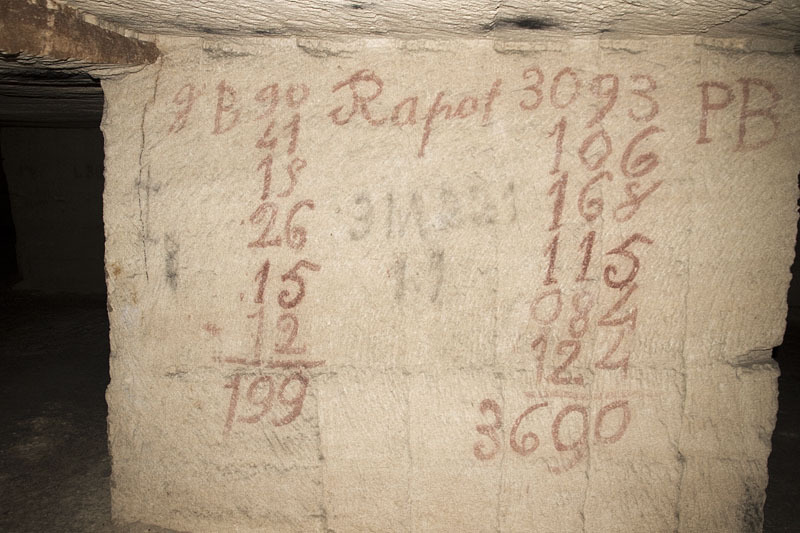 9 B 90 Rapot 3093 PB
41 106
18 168
26 115
15 082
+ 12 122
199 3600